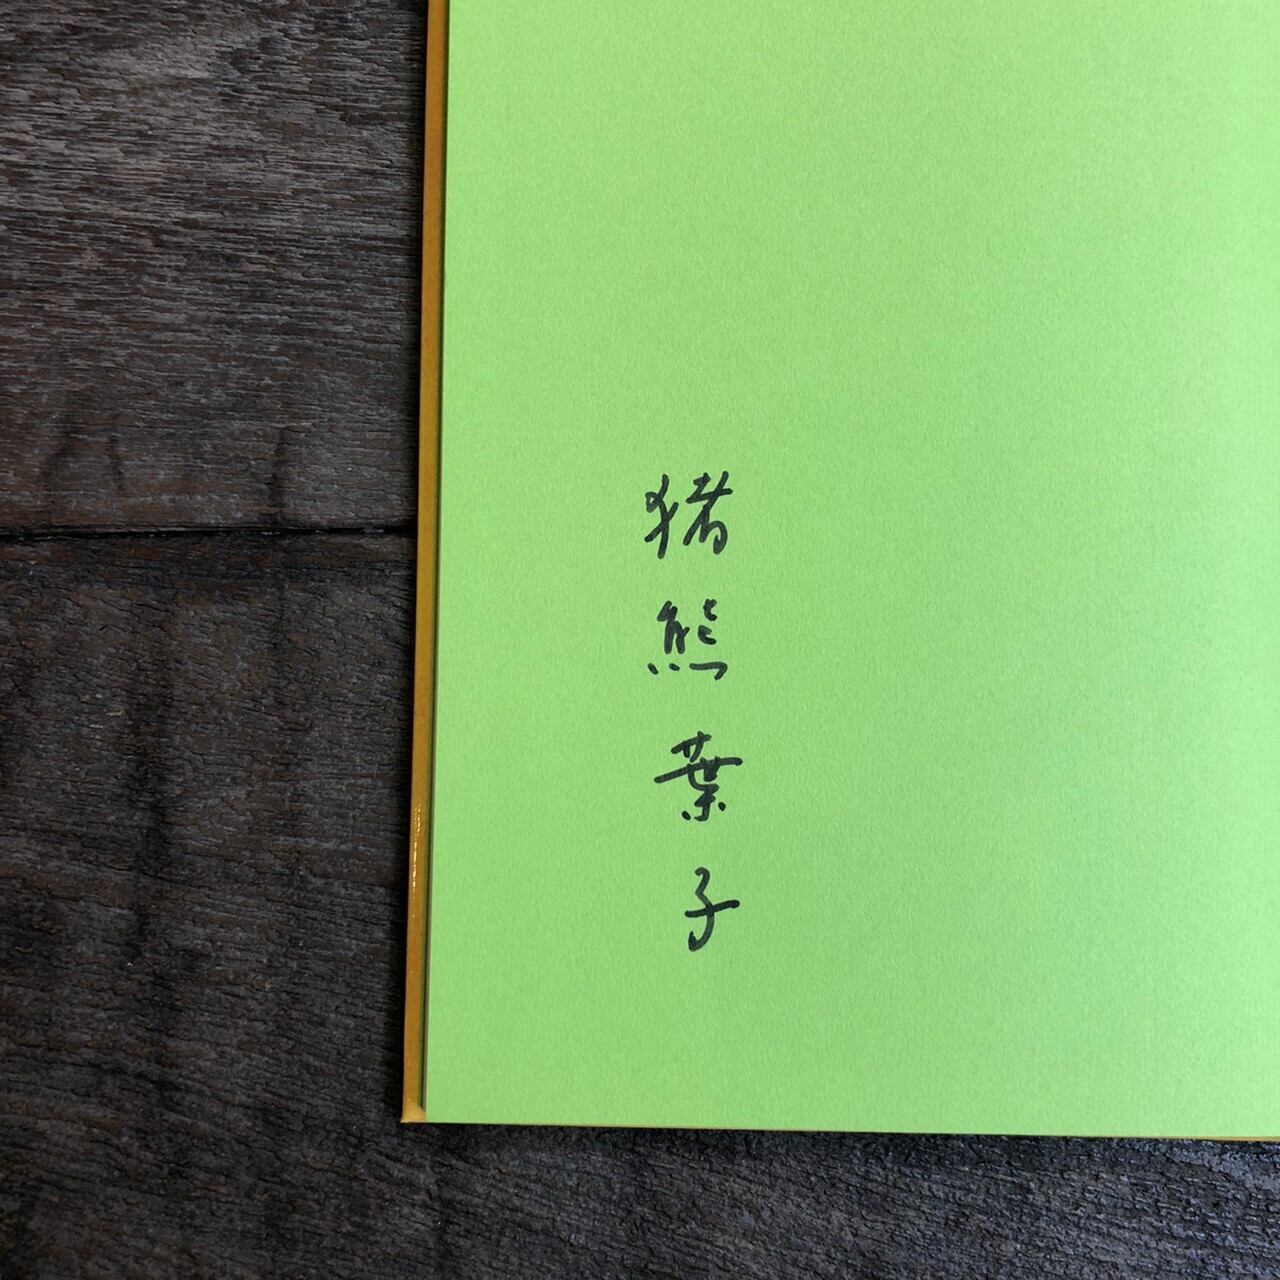 猪熊葉子